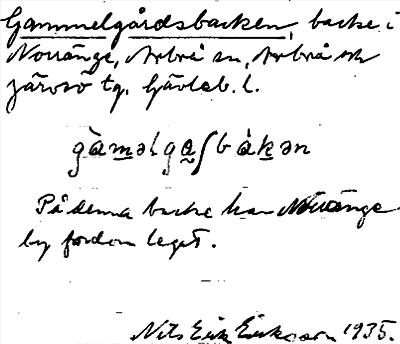 Gammelgårdsbacken, backe i
Norränge, Arbrå sn, Arbrå och
Järvsö tg. Gävleb. l.
gàməlgaʃbákən
På denna backe har Norränge
by fordom legat.
Nils Erik Eriksson 1935.